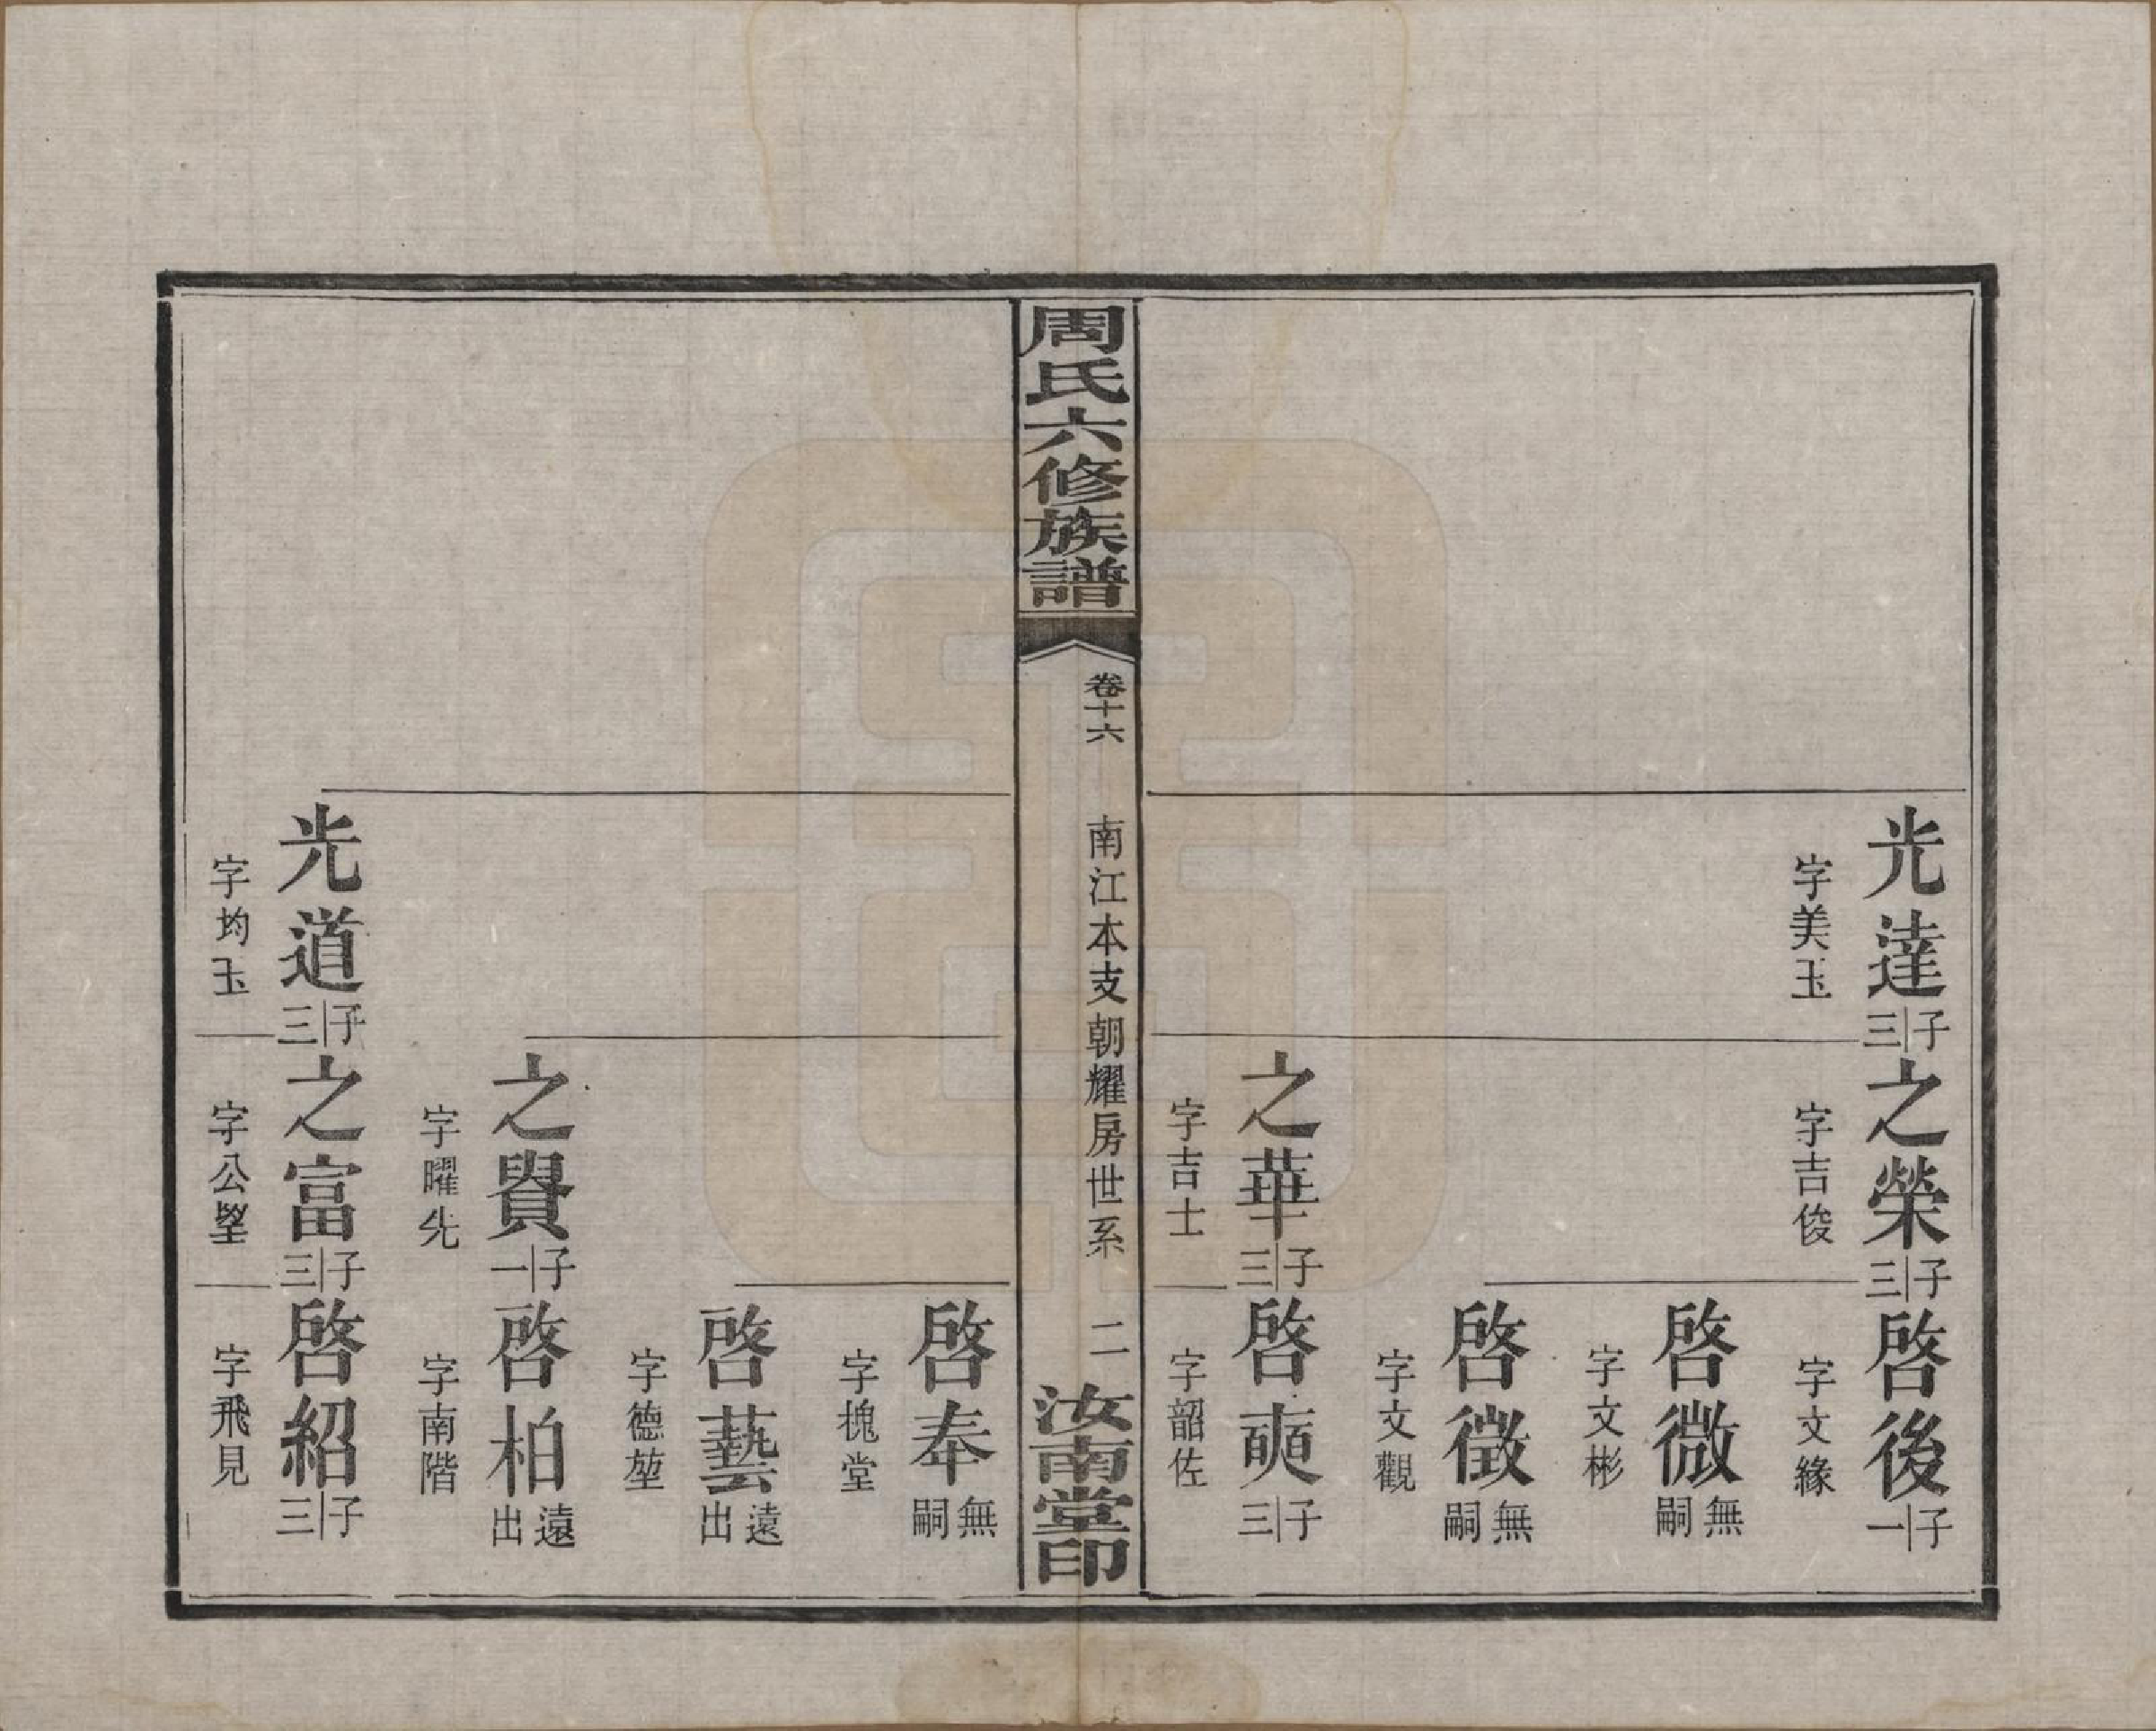 光達子三之榮子三啓後子一
字美玉
字吉俊
字文緣
啓微無嗣
字文彬
啓徴無嗣
字文觀
之華子三啓奭子三
字吉士
字韶佐
周氏六修族譜
卷十六
南江本支朝耀房世系
二
汝南堂印
啓奉無嗣
字槐堂
啓藝遠出
字德堃
之貴子一啓柏遠出
字曜先
字南階
光道子三之富子三啓紹子三
字均玉
字公
字飛見